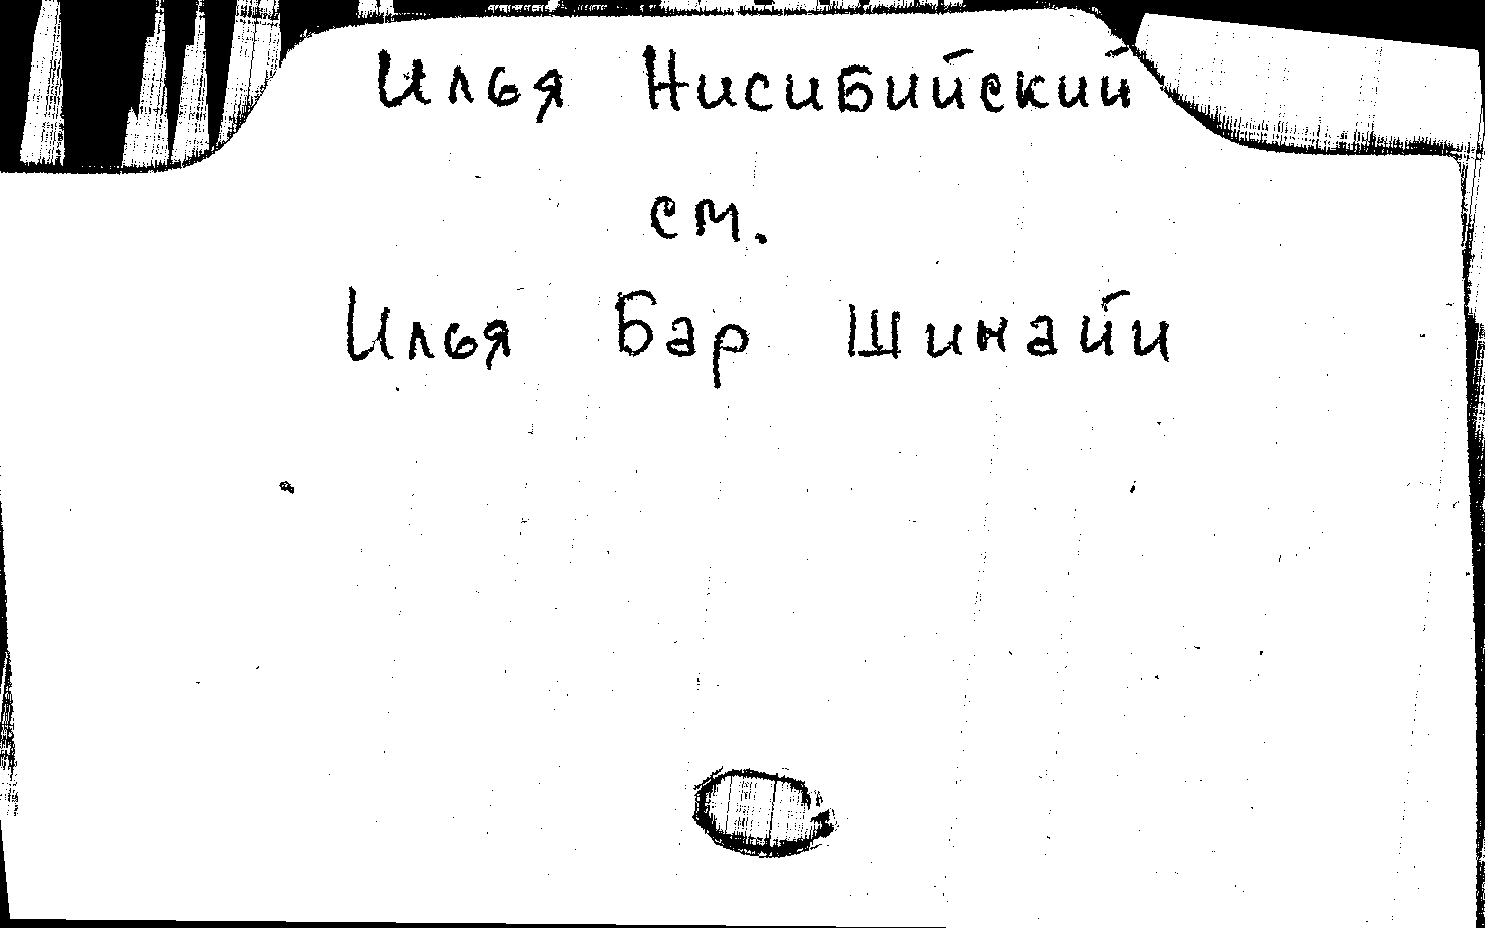 Илья Нисибийский
см.
Илья Бар Шинайи